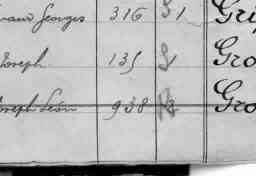 Georges 316 S1 Gri
Joseph 135 S1 Gro
Joseph Léon 938 R2 Gro